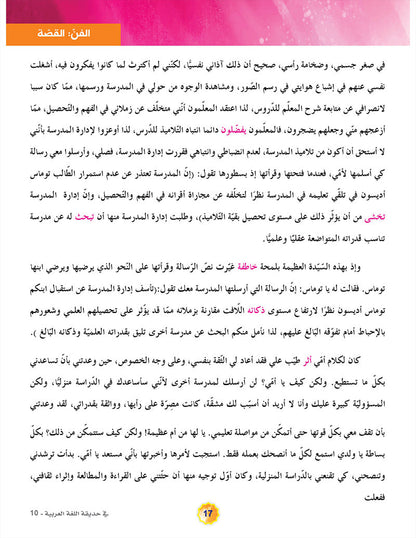 الفنّ: القصّة
في صغر جسمي، وضخامة رأسي، صحيح أن ذلك آذاني نفسيًّا، لكنّني لم أكترث لما كانوا يفكرون فيه، أشغلت
نفسي عنهم في إشباع هوايتي في رسم الصّور، ومشاهدة الوجوه من حولي في المدرسة ورسمها، ممّا كان سببا
لانصرافي عن متابعة شرح المعلّم للدّروس، لذا اعتقد المعلّمون أنّني متخلّف عن زملائي في الفهم والتّحصيل، ممّا
أزعجهم منّي وجعلهم يضجرون، فالمعلّمون يفضّلون دائما انتباه التّلاميذ للدّرس، لذا أوعزوا لإدارة المدرسة بأنّني
لا أستحق أن أكون من تلاميذ المدرسة، لعدم انضباطي وانتباهي فقررت إدارة المدرسة، فصلي، وأرسلوا معي رسالة
كي أسلمها لأمّي، فعندما فتحتها وقرأتها إذ بسطورها تقول: (إنّ المدرسة تعتذر عن عدم استمرار الطّالب توماس
أديسون في تلقّي تعليمه في المدرسة نظرًا لتخلّفه عن مجاراة أقرانه في الفهم والتّحصيل، وإنّ إدارة المدرسة
تخشى من أن يؤثّر ذلك على مستوى تحصيل بقيّة التّلاميذ)، وطلبت إدارة المدرسة منها أن تبحث له عن مدرسة
تناسب قدراته المتواضعة عقليًا وعلميًّا.
وإذ بهذه السّيّدة العظيمة بلمحة خاطفة غيّرت نصّ الرّسالة وقرأتها على النّحو الذي يرضيها ويرضي ابنها
توماس. فقالت له يا توماس: إنّ الرسالة التي أرسلتها المدرسة معك تقول:(تأسف إدارة المدرسة عن استقبال ابنكم
توماس أديسون نظرًا لارتفاع مستوى ذكائه اللّافت مقارنة بزملائه ممّا قد يؤثّر على تحصيلهم العلمي وشعورهم
بالإحباط أمام تفوّقه البالغ عليهم، لذا نأمل منكم البحث عن مدرسة أخرى تليق بقدراته العلميّة وذكائه البالغ ).
كان لكلام أمّي أثر طيّب علي فقد أعاد لي الثّقة بنفسي، وعلى وجه الخصوص، حين وعدتني بأنّ تساعدني
بكلّ ما تستطيع. ولكن كيف يا أمّي؟ لن أرسلك لمدرسة أخرى لأنّني سأساعدك في الدّراسة منزليًّا، ولكن
المسؤوليّة كبيرة عليك وأنا لا أريد أن أسبّب لك مشقّة، كانت مصرّة على رأيها، وواثقة بقدراتي، لقد وعدتني
بأن تقف معي بكلّ قوتها حتى أتمكّن من مواصلة تعليمي. يا لها من أم عظيمة! ولكن كيف ستتمكّن من ذلك؟ بكلّ
بساطة يا ولدي استمع لكلّ ما أنصحك بعمله فقط. استجبت لأمرها وأخبرتها بأنّني مستعد يا أمّي. بدأت ترشدني
وتنصحني، كي تقنعني بالدّراسة المنزلية، وكان أوّل توجيه منها أن حثّتني على القراءة والمطالعة وإثراء ثقافتي،
ففعلت
17
في حديقة اللغة العربية - 10